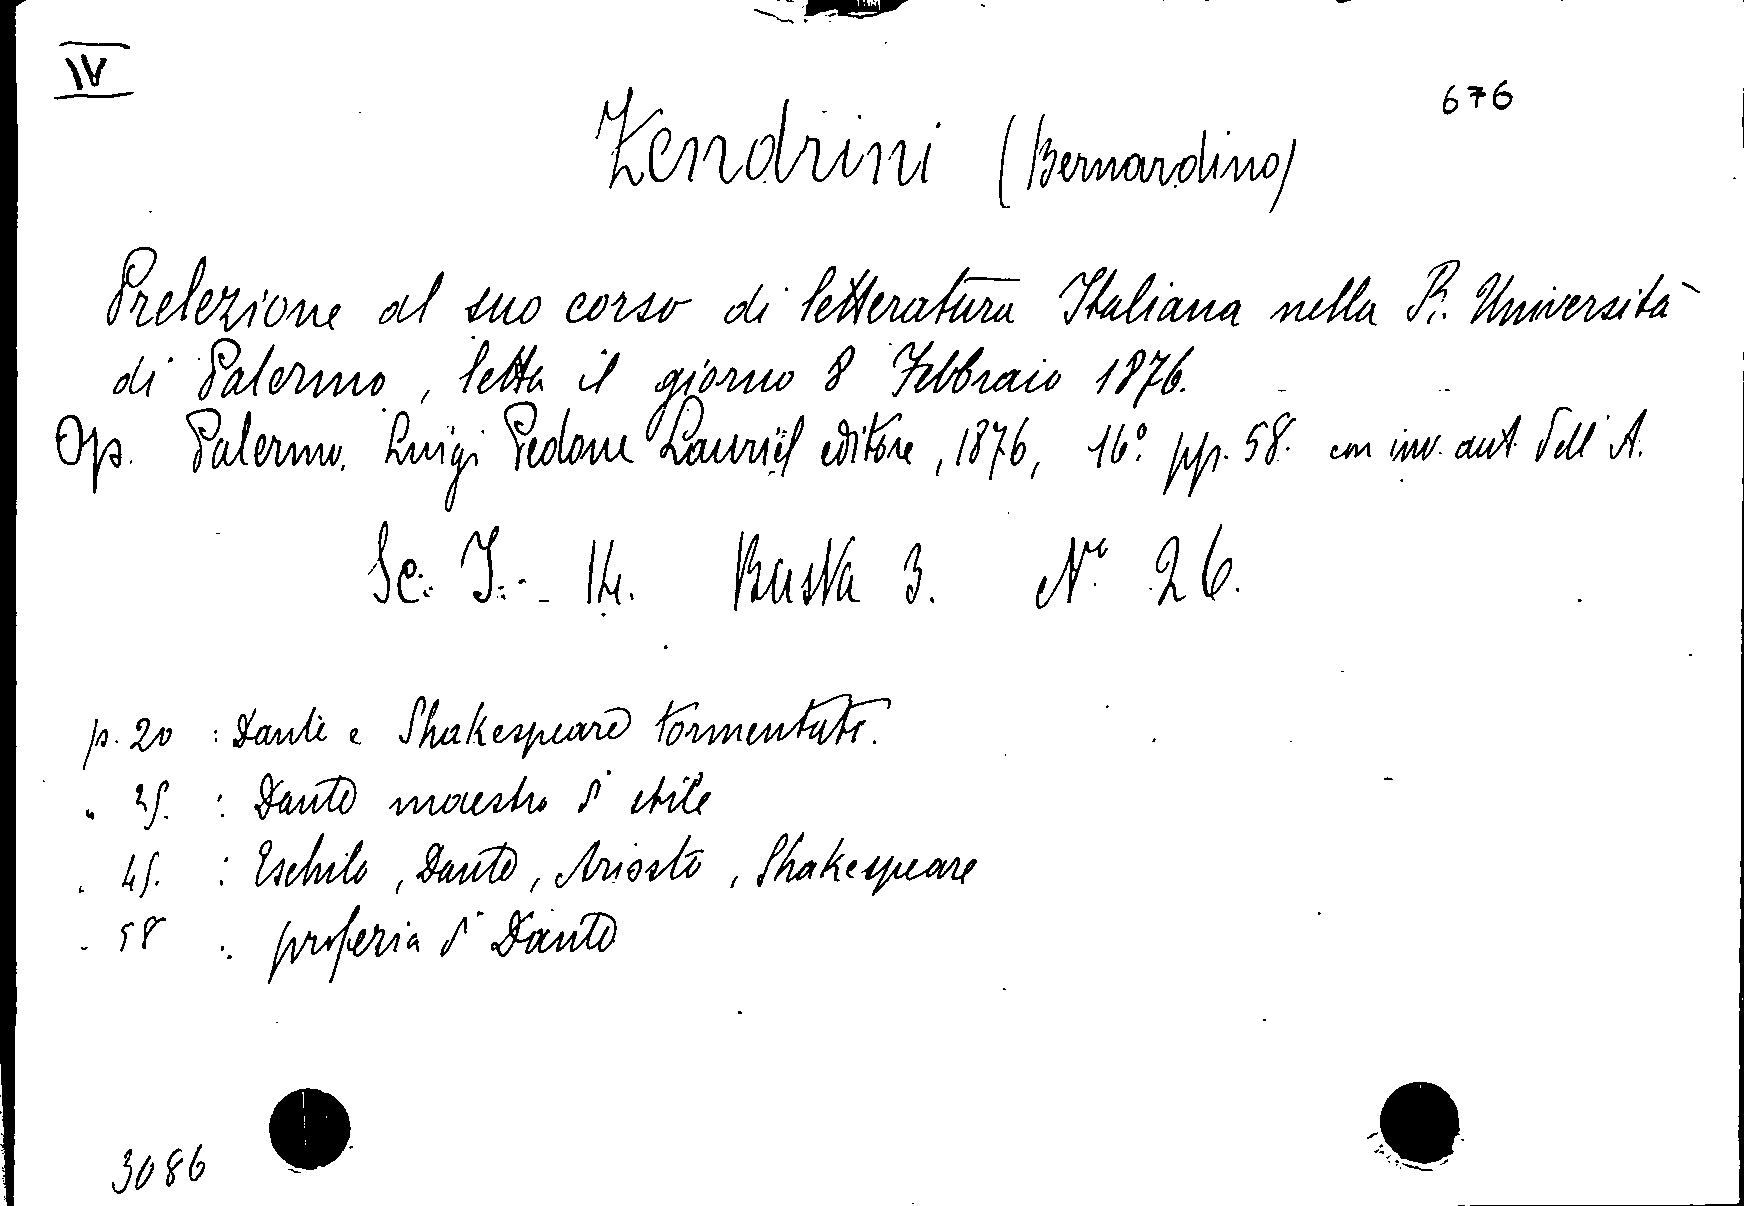 IV
676
Zendrini (Bernardino)
Prelezione al suo corso di letteratura Italiana nella R. Università
di Palermo, letta il giorno 8 Febbraio 1876.
Op. Palermo. Luigi Pedone Lauriel editore, 1876, 16° pp. 58. con inv. aut. dell'A.
Sc. I. - 14. Busta 3. N° 26.
p. 20 : Dante e Shakespeare tormentati.
" 25. : Dante maestro d' stile
" 45. : Eschilo, Dante, Ariosto, Shakespeare
" 58 : profezia d' Dante
3086